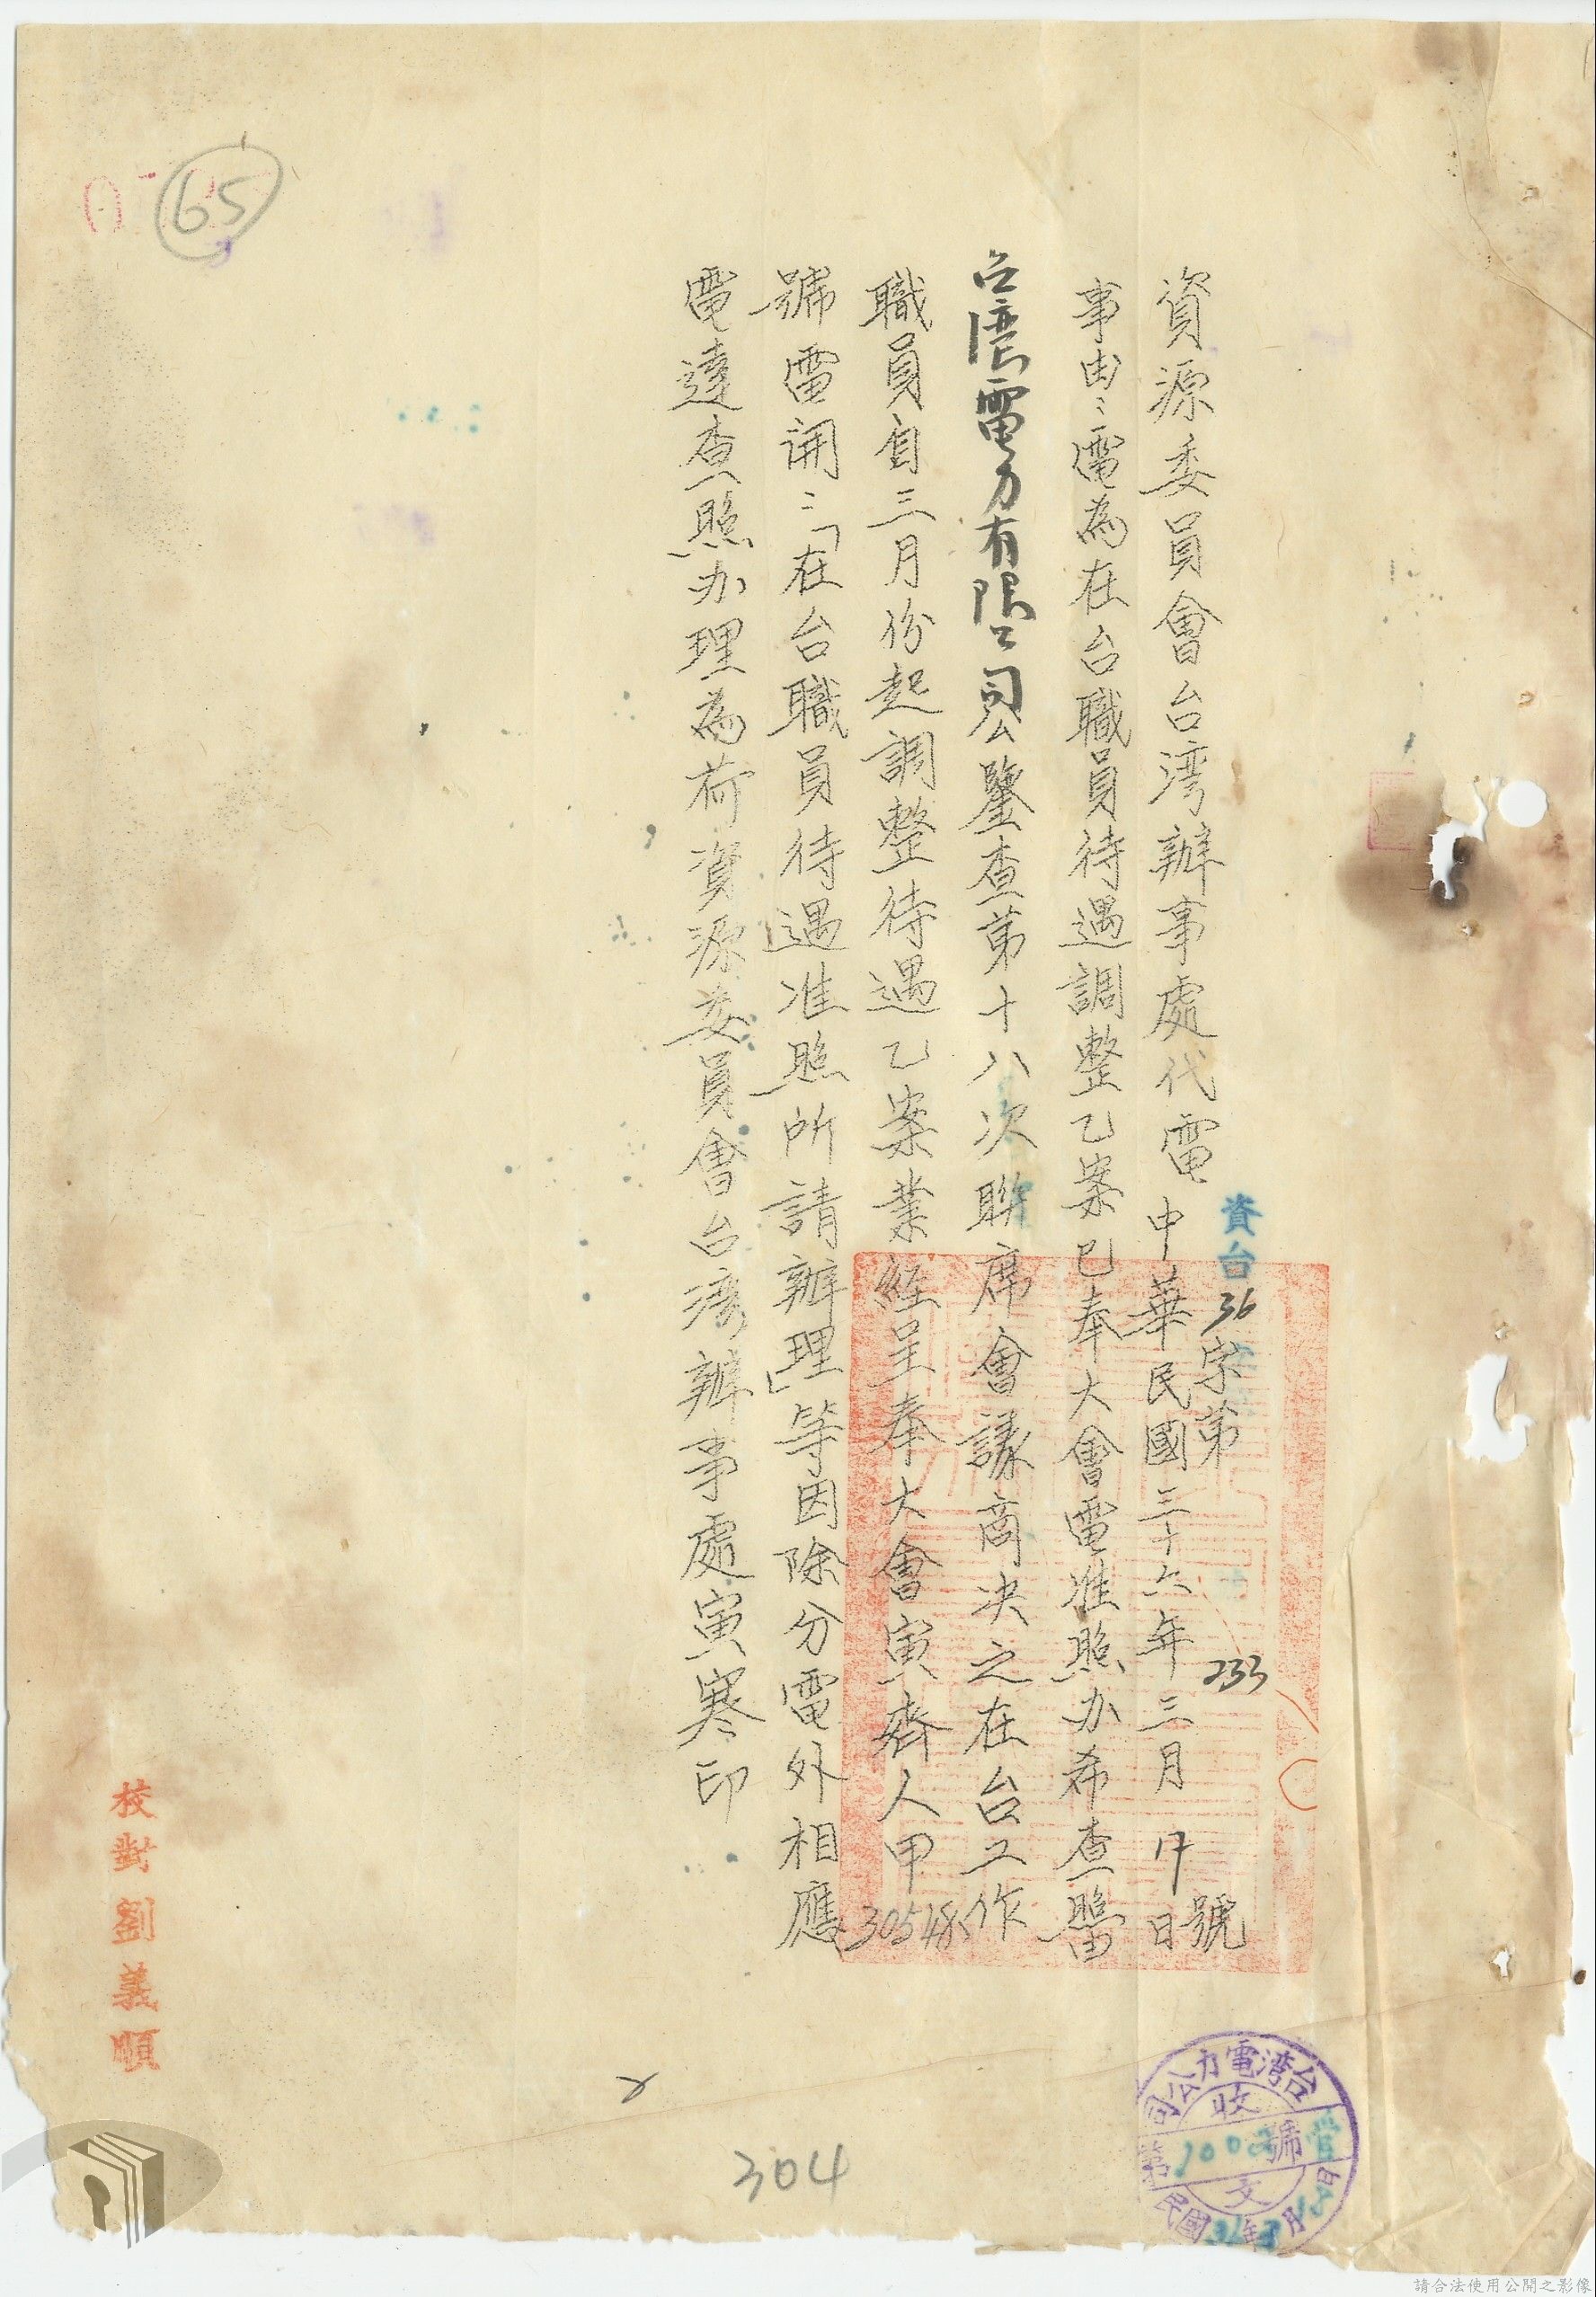 資台36字第233號
資源委員會台湾辦事處代電 中華民國三十六年三月 日
事由:電為在台職員待遇調整乙案已奉大會電准照办希查照由
台灣電力有限公司公鑒查第十八次聯席會議商决之在台工作
職員自三月份起調整待遇乙案業經呈奉大會寅齊人甲30548
號電開:「在台職員待遇准照所請辦理」等因除分電外相應
電達查照办理為荷資源委員會台湾辦事處寅寒印
65
校對劉義順
304
台湾電力公司
收文
第 號
民國 年 月 日
請合法使用公開之影像